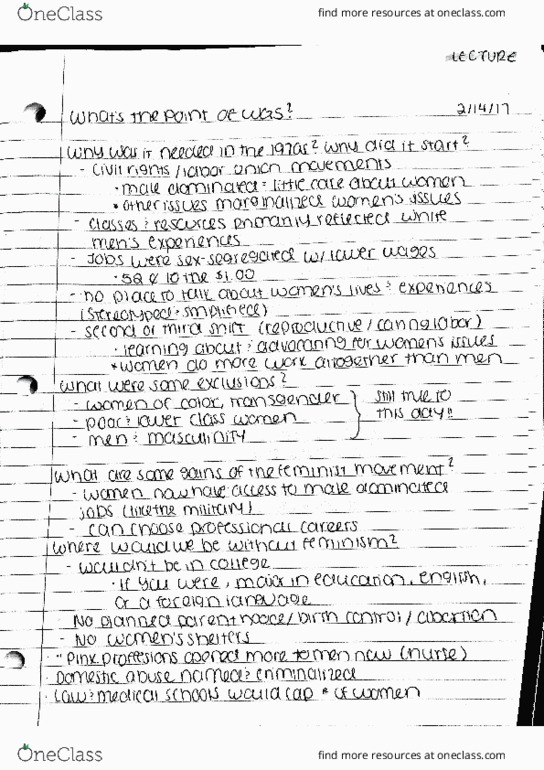 OneClass
find more resources at oneclass.com
LECTURE
What's the point of WGS?
2/14/17
Why was it needed in the 1970s? Why did it start?
- Civil rights / labor union movements
· male dominated = little care about women
* other issues marginalized women's issues
- classes & resources primarily reflected white
men's experiences
- Jobs were sex-segregated w/ lower wages
· 52 ¢ to the $1.00
- no place to talk about women's lives & experiences
(stereotyped & simplified)
- second or third shift (reproductive / caring labor)
· learning about & advocating for women's issues
* women do more work altogether than men
What were some exclusions?
- women of color, transgender
- poor & lower class women
- men & masculinity
still true to
this day!!
What are some gains of the feminist movement?
- women now have access to male dominated
jobs (like the military)
- can choose professional careers
Where would we be without feminism?
- wouldn't be in college
· If you were, major in education, english,
or a foreign language
No planned parenthood / birth control / abortion
- No women's shelters
"Pink" profesions opened more to men now (nurse)
Domestic abuse named & criminalized
Law & medical schools would cap # of women
OneClass
find more resources at oneclass.com